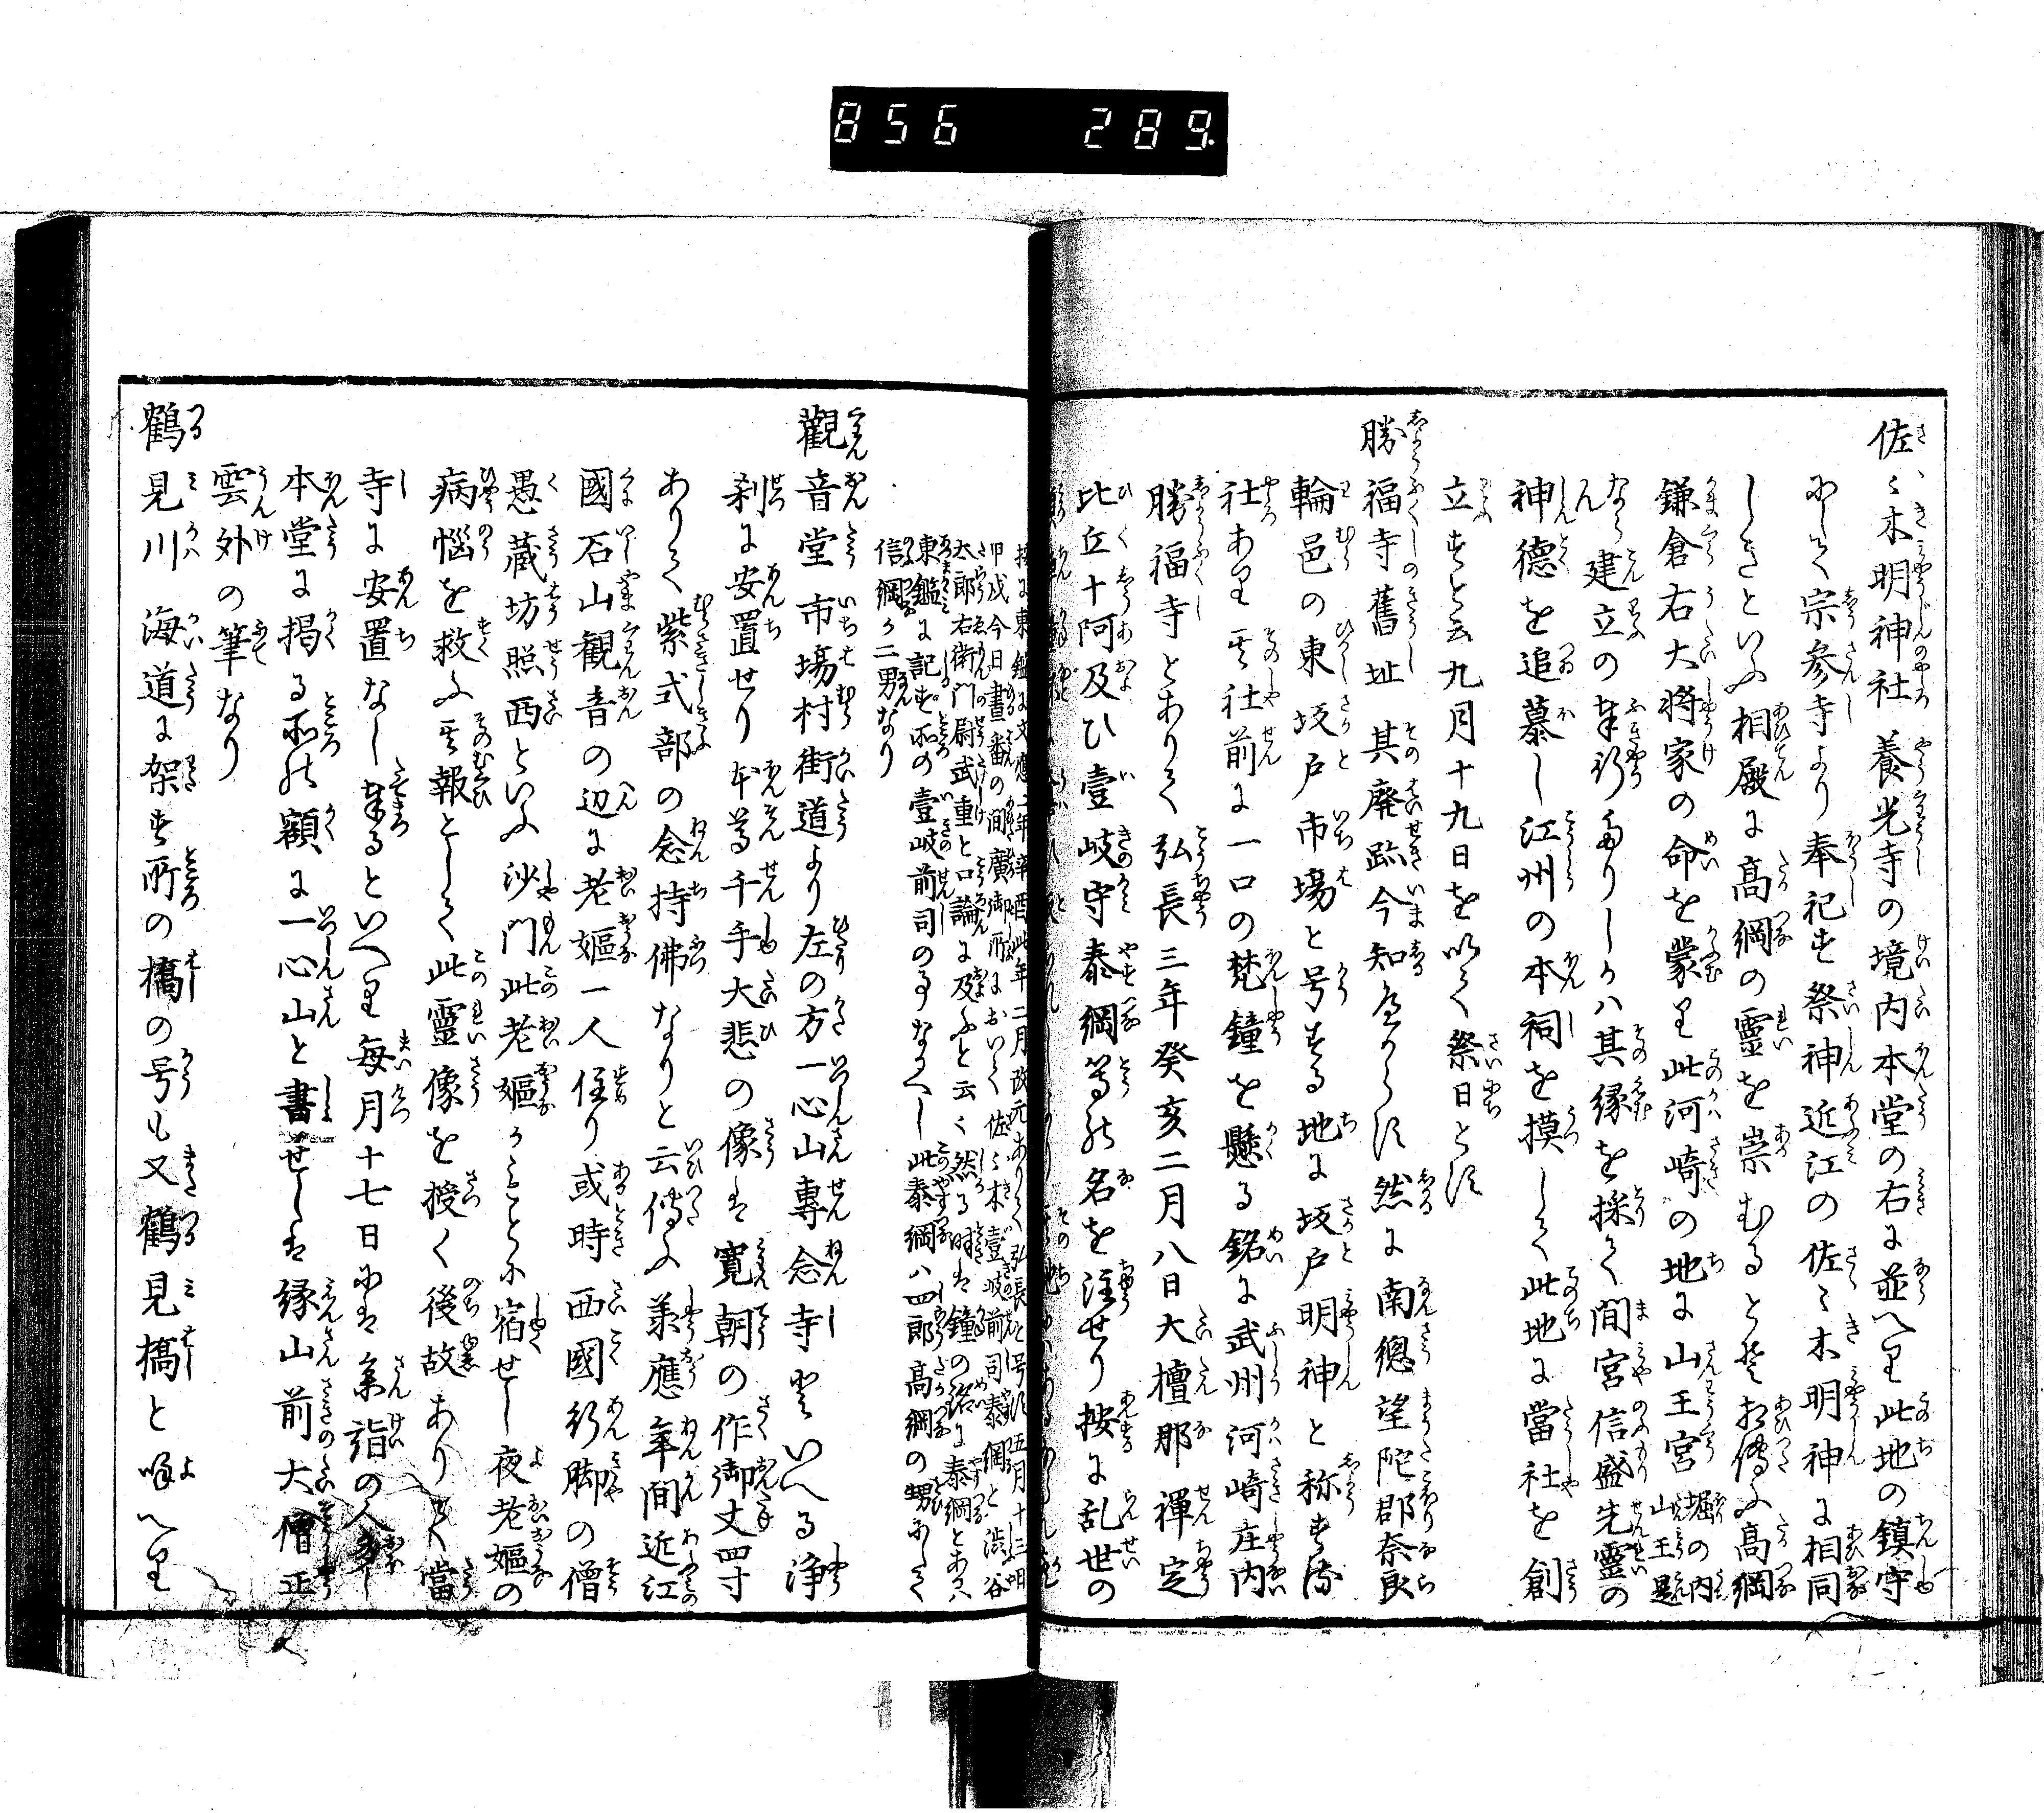 856 289
佐々木明神社 養光寺の境内本堂の右に並へり此地の鎮守
にして宗参寺より奉祀す祭神近江の佐々木明神に相同
しきといふ相殿に高綱の霊を崇むるとそ相傳ふ高綱
鎌倉右大将家の命を蒙り此河崎の地に山王宮 堀の内山王是
なり 建立の奉行たりしかハ其縁を採て間宮信盛先霊の
神徳を追慕し江州の本祠を摸して此地に當社を創
立すと云九月十九日を以て祭日とす
勝福寺舊址 其廃跡今知へからす然に南總望陀郡奈良
輪邑の東坂戸市場と号する地に坂戸明神と称する
社あり其社前に一口の梵鐘を懸る銘に武州河崎庄内
勝福寺とありて弘長三年癸亥二月八日大檀那禪定
比丘十阿及ひ壹岐守泰綱等の名を注せり按に乱世の
按に東鑑に文應二年辛酉此年二月改元ありて弘長と号す五月十三日
甲戌今日晝番の間廣御所において佐々木壹岐前司泰綱と渋谷
太郎右衛門尉武重と口論に及ふと云々然る時は鐘の銘に泰綱とあるハ
東鑑に記す所の壹岐前司の事なるへし此泰綱ハ四郎高綱の甥にして
信綱か二男なり
觀音堂 市場村街道より左の方一心山專念寺といへる浄
刹に安置せり本尊千手大悲の像は寛朝の作御丈四寸
ありて紫式部の念持佛なりと云傳ふ承應年間近江
國石山觀音の辺に老嫗一人住り或時西國行脚の僧
愚蔵坊照西といふ沙門此老嫗かもとに宿せし夜老嫗の
病悩を救ふ其報として此靈像を授く後故ありて當
寺に安置なし奉るといへり毎月十七日には参詣の人多し
本堂に掲る所の額に一心山と書せしは縁山前大僧正
雲外の筆なり
鶴見川 海道に架す所の橋の号も又鶴見橋と唱へり